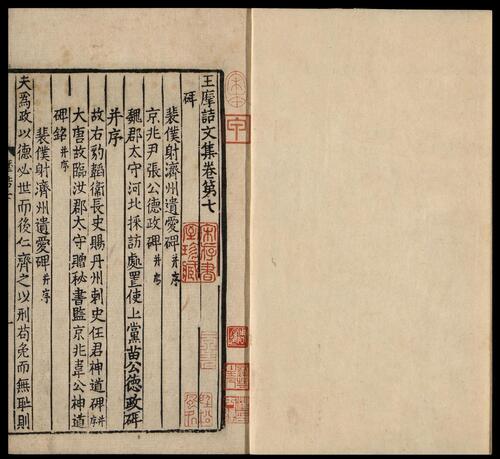 王摩詰文集卷第七
碑
裴僕射濟州遺愛碑并序
京兆尹張公德政碑并序
魏郡太守河北採訪處置使上黨苗公德政碑
并序
故右豹韜衞長史賜丹州刺史任君神道碑并序
大唐故臨汝郡太守贈秘書監京兆韋公神道
碑銘并序
裴僕射濟州遺愛碑并序
夫爲政以德必世而後仁齊之以刑苟免而無恥則